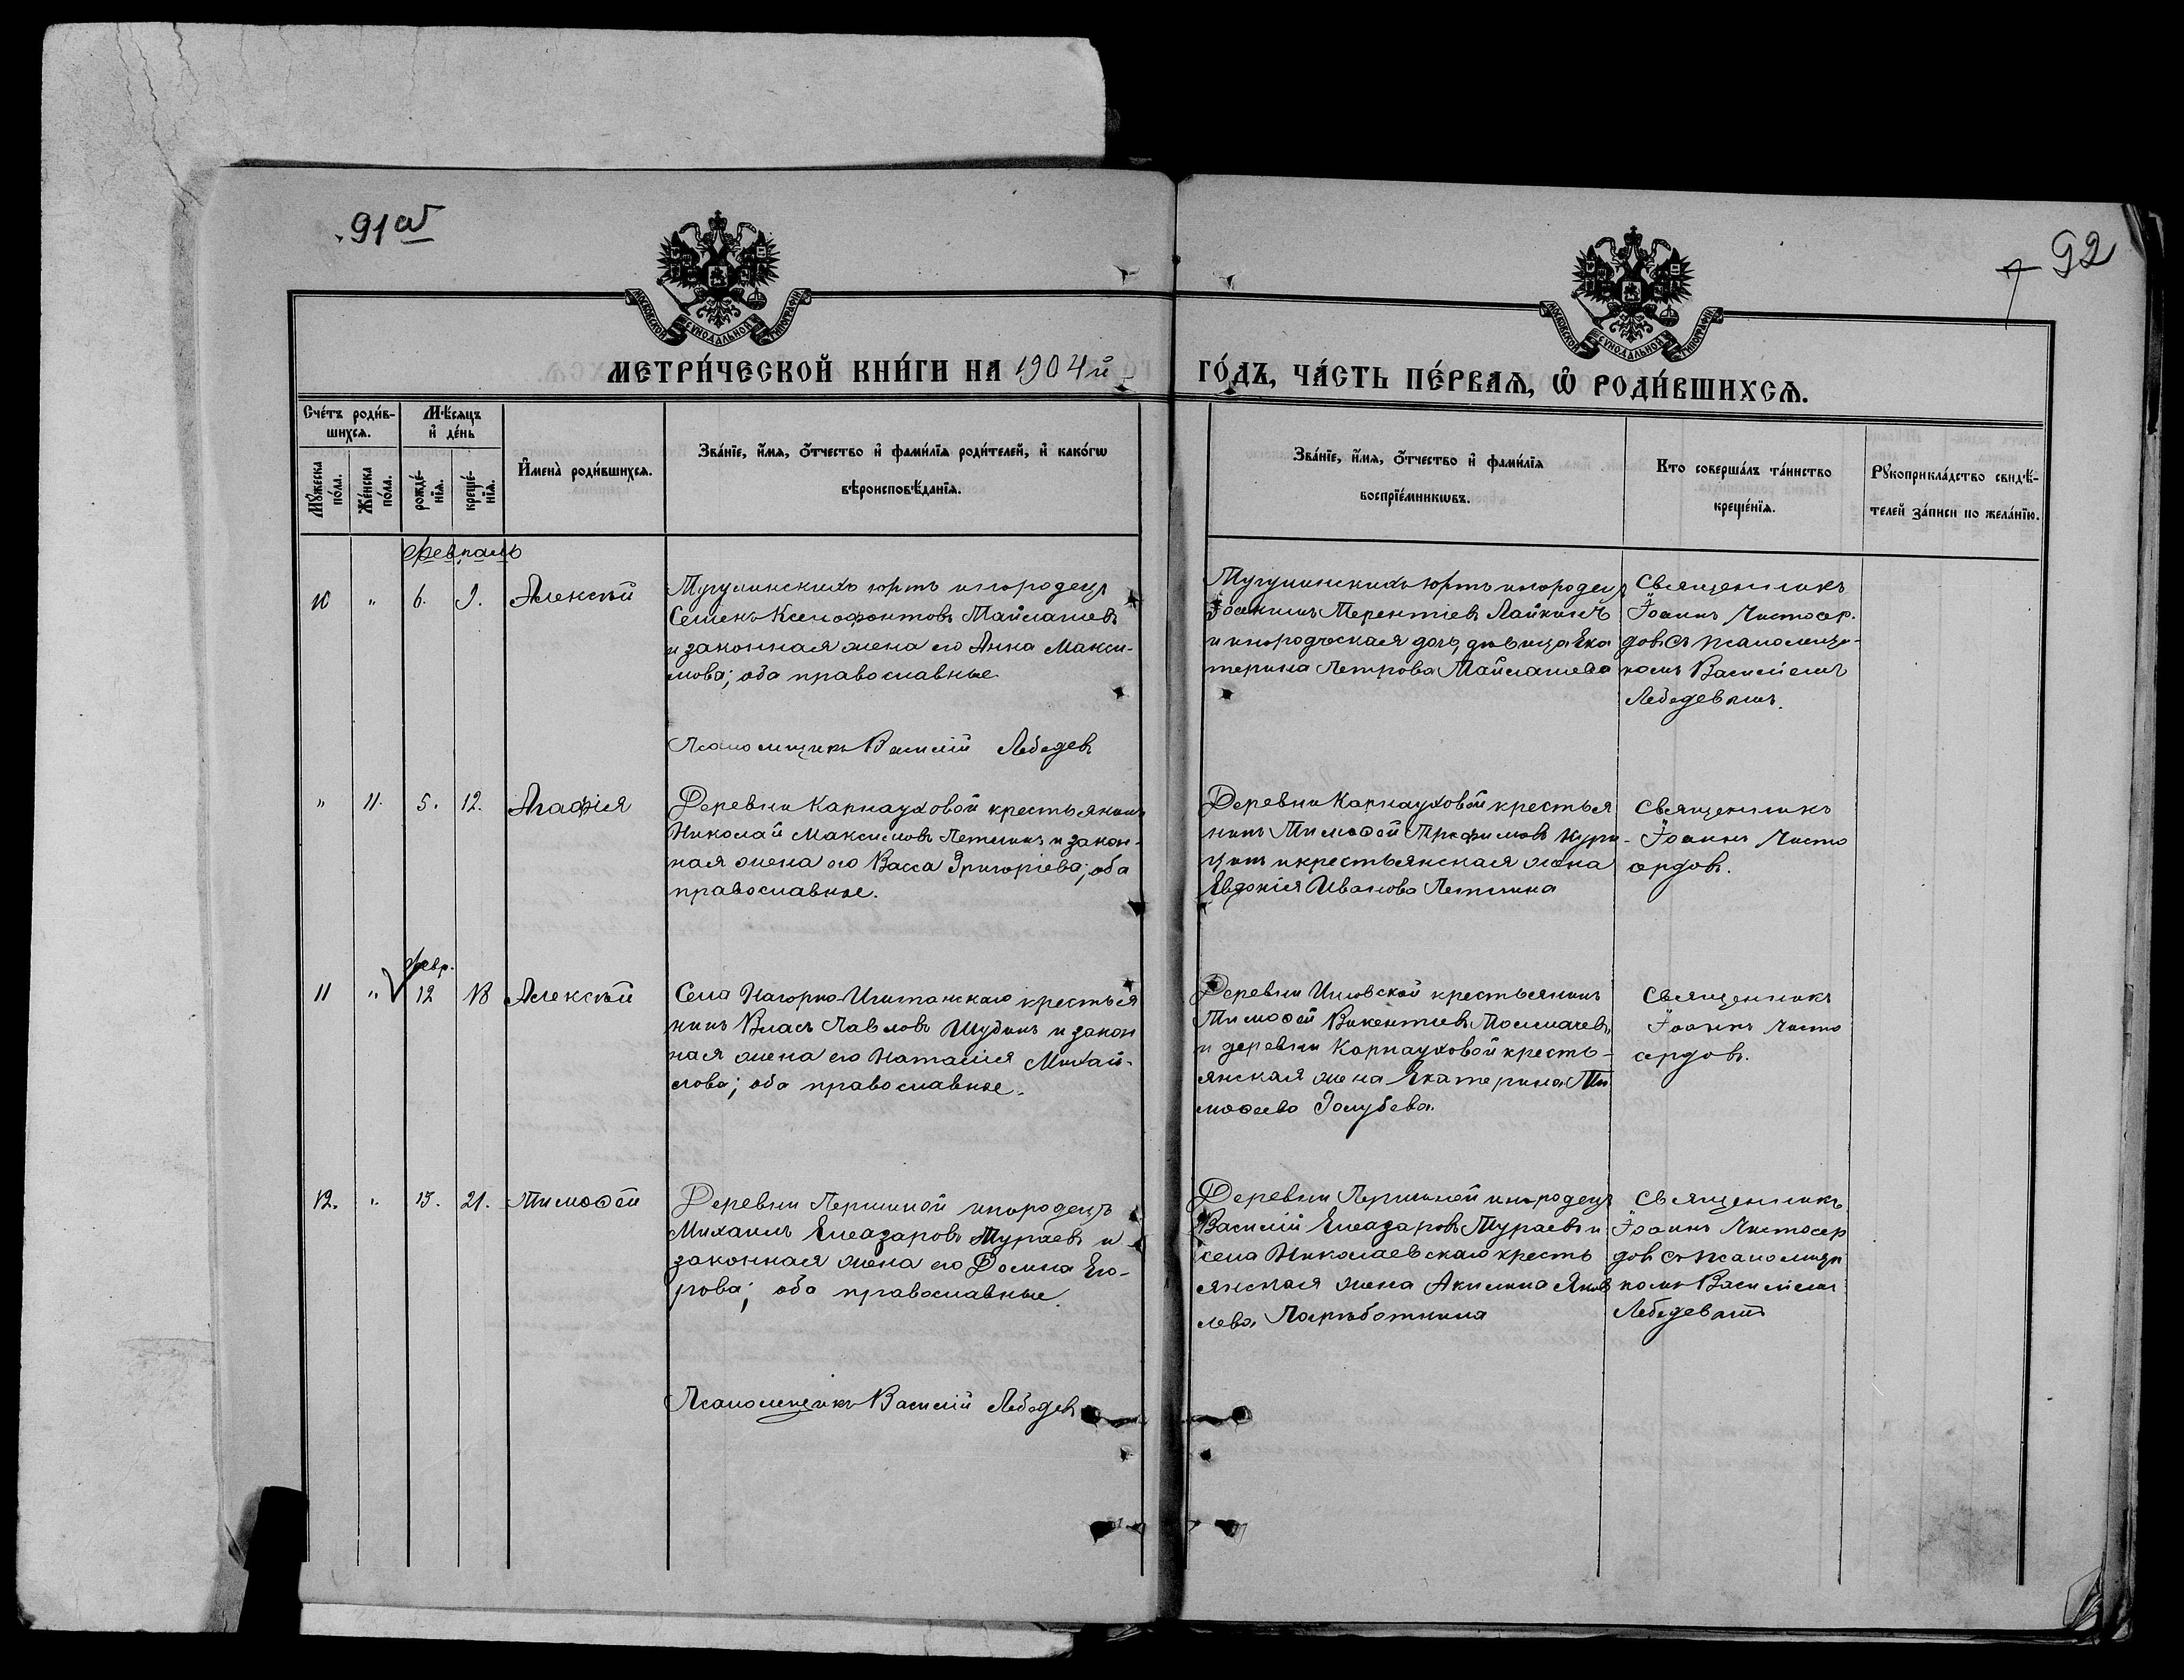 91 об
7 92
МОСКОВСКОЙ СѴНОДАЛЬНОЙ ТИПОГРАФІИ
МОСКОВСКОЙ СѴНОДАЛЬНОЙ ТИПОГРАФІИ
МЕТРИ́ЧЕСКОЙ КНИ́ГИ НА 1904й ГО́ДЪ, ЧА́СТЬ ПЕ́РВАѦ, Ѡ҆ РОДИ́ВШИХСѦ.
Сче́тъ роди́в-
шихсѧ.
Мѣ́сѧцъ
и҆ де́нь
Мꙋ́жеска
по́ла.
Же́нска
по́ла.
рожде́-
нїѧ.
креще́-
нїѧ.
И҆мена̀ роди́вшихсѧ.
Зва́нїе, и҆́мѧ, ѻ҆́тчество и҆ фами́лїѧ роди́телей, и҆ како́гѡ
вѣроисповѣ́данїѧ.
Зва́нїе, и҆́мѧ, ѻ҆́тчество и҆ фами́лїѧ
воспрїе́мникѡвъ.
Кто соверша́лъ та́инство
креще́нїѧ.
Рꙋкоприкла́дство свидѣ́-
телей за́писи по жела́нїю.
Февраль
10 " 6. 9. Алексѣй
Мугулинскихъ юртъ инородецъ
Семенъ Ксенофонтовъ Майлашевъ
и законная жена его Анна Макси-
мова; оба православные
Псаломщикъ Василій Лебедевъ
Мугулинскихъ юртъ инородецъ
Іоакимъ Терентіевъ Лайкинъ
и инородческая дочь, дѣвица Ека
терина Петрова Майлашева
Священникъ
Іоаннъ Чистосер.
довъ съ псаломщи-
комъ Василіемъ
Лебедевымъ.
" 11. 5. 12. Агафія
Деревни Карнауховой крестьянинъ
Николай Максимовъ Петлинъ и закон-
ная жена его Васса Григорієва; оба
православные.
Деревни Карнауховой крестья
нинъ Тимоѳей Трофимовъ Кури-
цинъ и крестьянская жена
Евдокія Иванова Петлина
Священникъ
Іоаннъ Чисто
сердовъ.
Февр.
11 " 12 18 Алексѣй
Села Нагорно-Иштанскаго крестья
нинъ Власъ Павловъ Шубинъ и закон
ная жена его Наталія Михай-
лова; оба православные.
Деревни Иловской крестьянинъ
Тимоѳей Викентіевъ Толмачевъ,
и деревни Карнауховой кресть-
янская жена Екатерина Ти
моѳеева Голубева.
Священникъ
Іоаннъ Чисто
сердовъ.
12. " 15. 21. Тимоѳей
Деревни Першиной инородецъ
Михаилъ Елеазаровъ Тураевъ и
законная жена его Домна Его-
рова; оба православные.
Псаломщикъ Василій Лебедевъ
Деревни Першиной инородецъ
Василій Елеазаровъ Тураевъ и
села Николаевскаго кресть
янская жена Акилина Яков
лева
Священникъ
Іоаннъ Чистосер
довъ съ псаломщи
комъ Василіемъ
Лебедевымъ